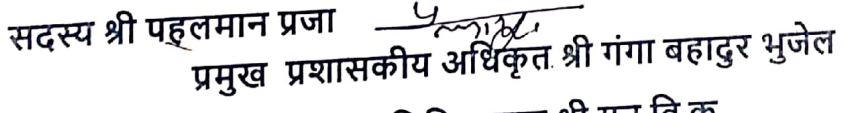 सदस्य श्री पहलमान प्रजा
प्रमुख प्रशासकीय अधिकृत श्री गंगा बहादुर भुजेल